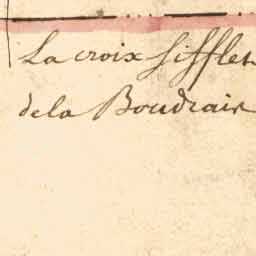 La croix sifflet
dela Boudrair